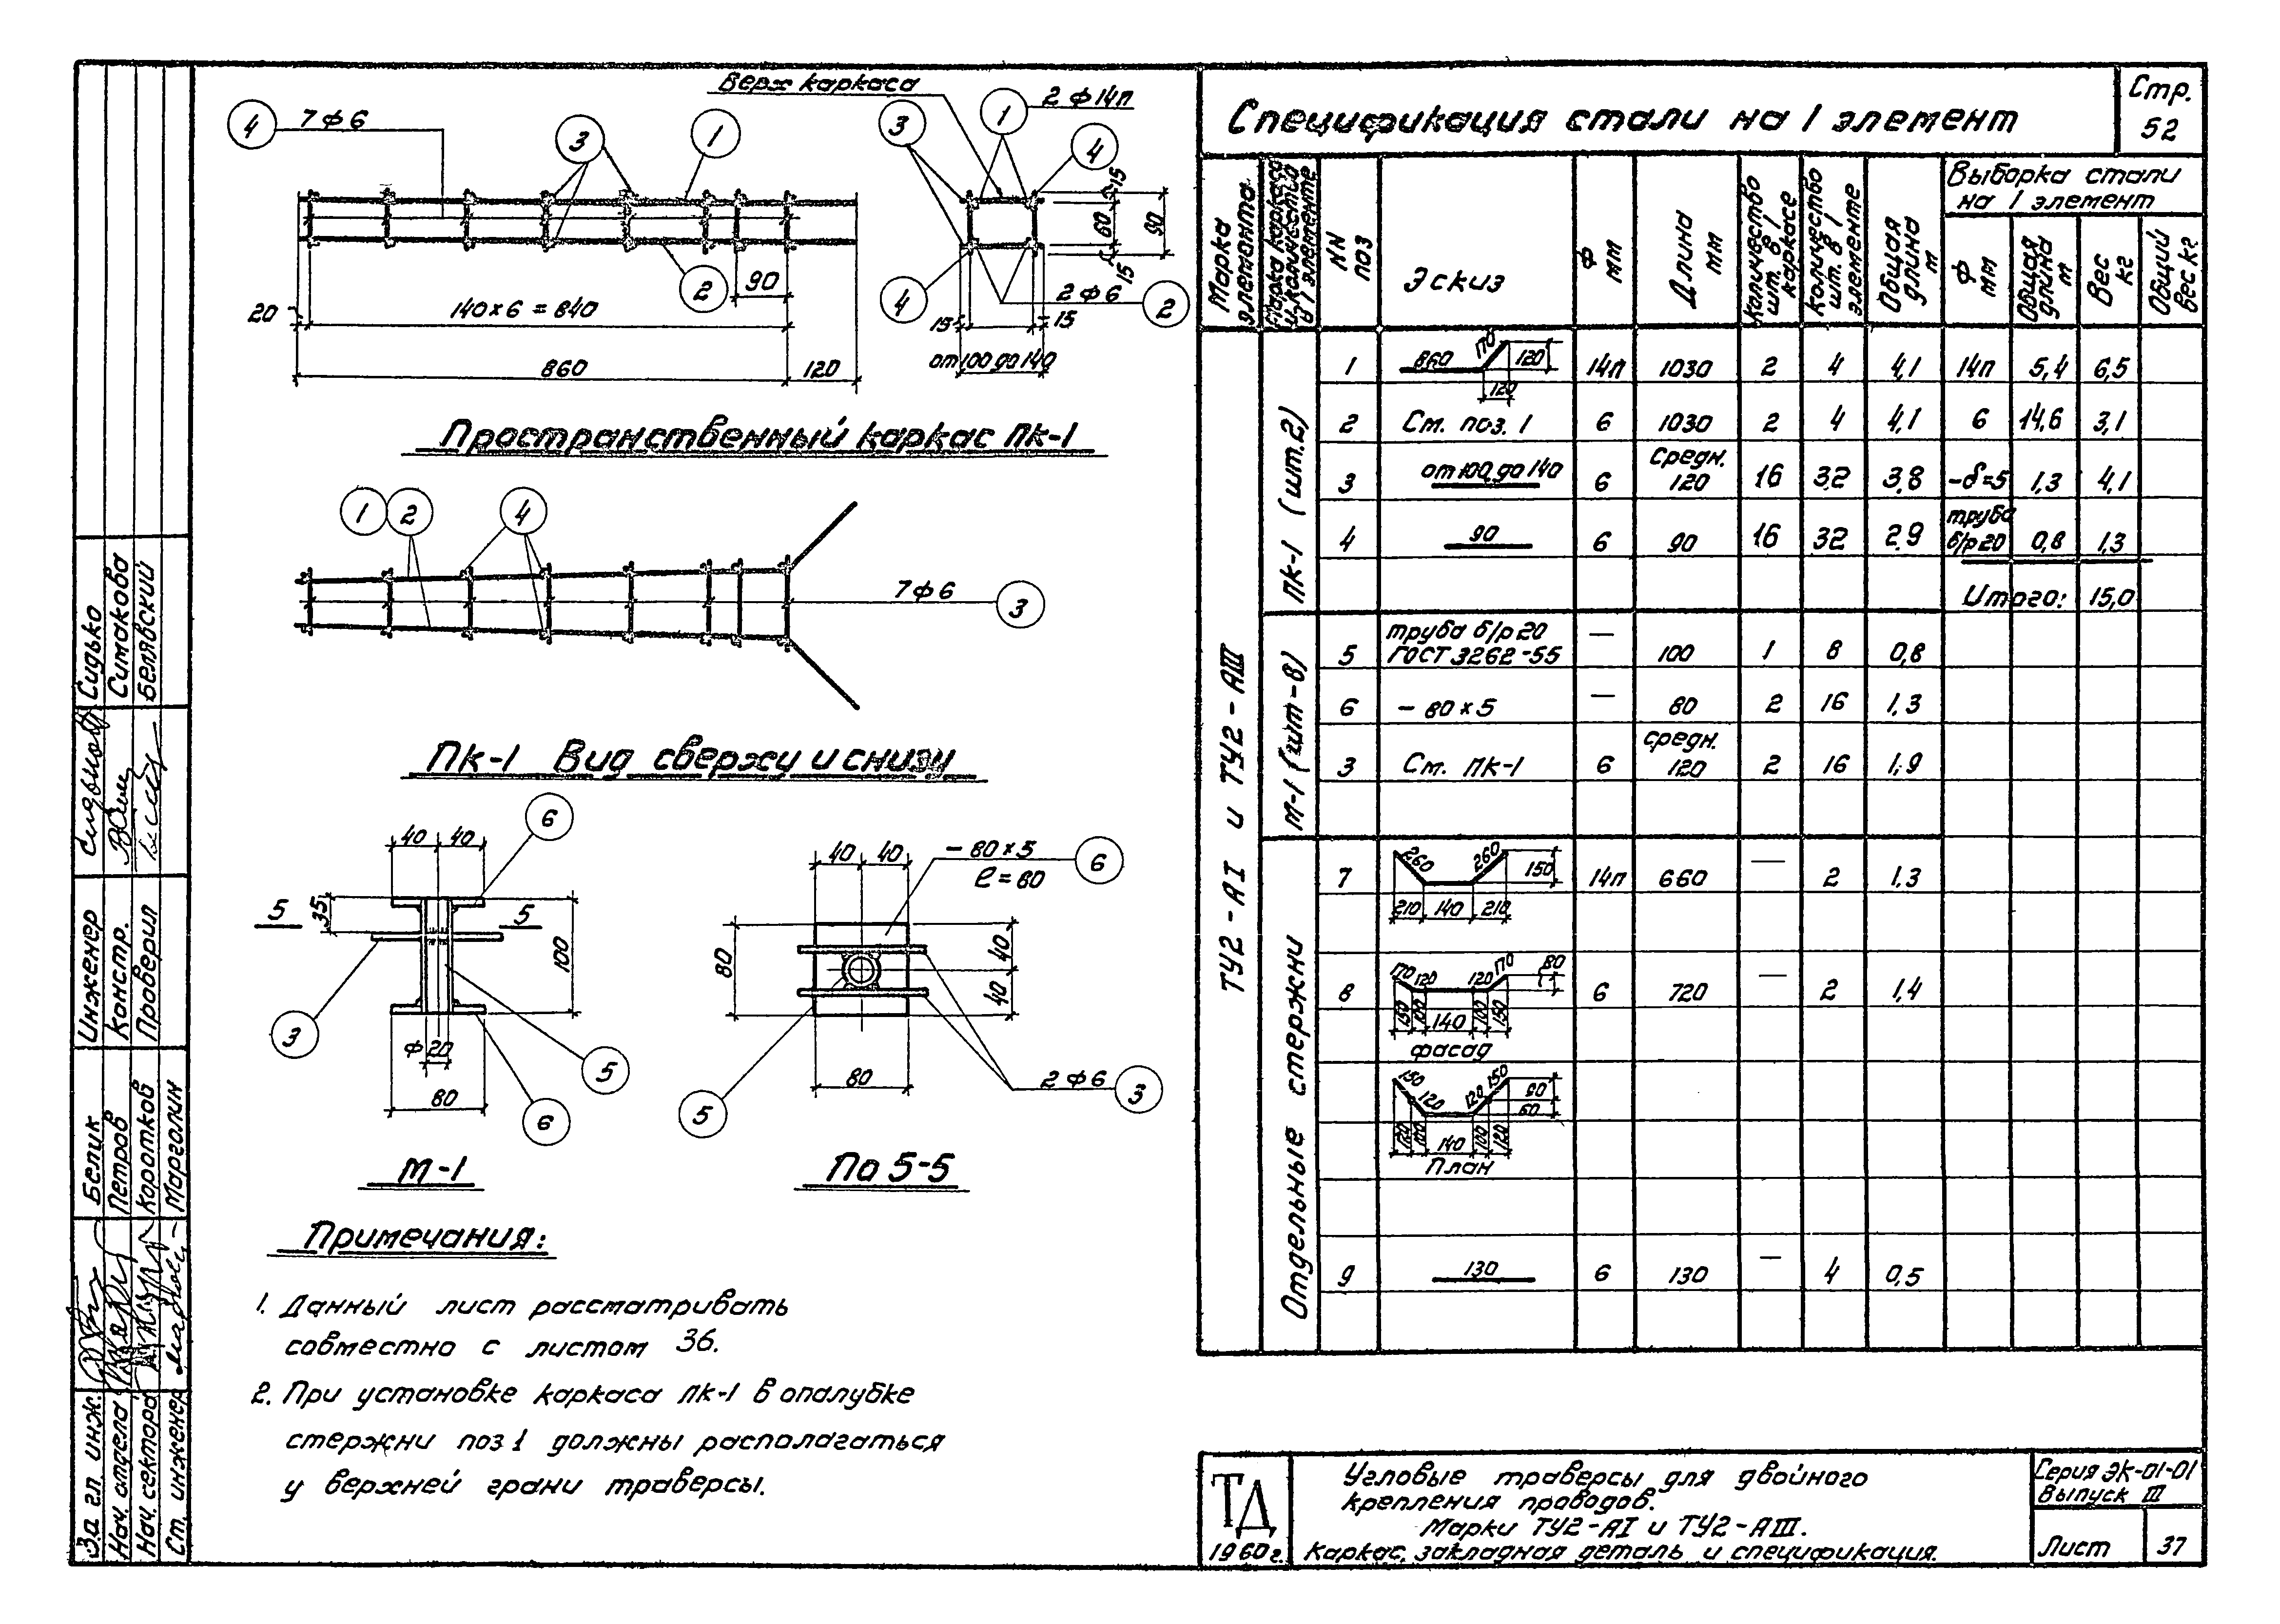 Верх каркаса
4
7ф6
3
1
3
1
2ф14п
4
15
60
90
15
2
90
4
2ф6
2
20
140×6 = 840
15
15
860
120
от 100 до 140
Пространственный каркас ПК-1
1
2
4
7ф6
3
ПК-1 Вид сверху и снизу
40
40
6
5
35
5
100
3
ф20
5
80
6
М-1
40
40
- 80×5
ℓ=80
6
80
40
40
80
2ф6
3
5
По 5-5
Примечания:
1. Данный лист рассматривать
совместно с листом 36.
2. При установке каркаса ПК-1 в опалубке
стержни поз 1 должны располагаться
у верхней грани траверсы.
Спецификация стали на 1 элемент
Стр.
52
Марка элемента
Марка каркаса и количество в 1 элементе
NN поз
Эскиз
ф мм
Длина мм
Количество шт. в 1 каркасе
Количество шт. в 1 элементе
Общая длина м
Выборка стали на 1 элемент
ф мм
Общая длина м
Вес кг
Общий вес кг
ТУ2-АI и ТУ2-АIII
ПК-1 (шт.2)
1 860 170 120 120 14п 1030 2 4 4,1 14п 5,4 6,5
2 См. поз. 1 6 1030 2 4 4,1 6 14,6 3,1
3 от 100 до 140 6 средн. 120 16 32 3,8 -δ=5 1,3 4,1
4 90 6 90 16 32 2,9 труба б/р 20 0,8 1,3
Итого: 15,0
М-1 (шт-8)
5 труба б/р 20 ГОСТ 3262-55 — 100 1 8 0,8
6 - 80×5 — 80 2 16 1,3
3 См. ПК-1 6 средн. 120 2 16 1,9
Отдельные стержни
7 260 260 150 210 140 210 14п 660 — 2 1,3
8 170 120 120 170 80 150 100 140 100 150 6 720 — 2 1,4
фасад
150 120 120 150 90 60 120 100 140 100 120
План
9 130 6 130 — 4 0,5
ТД
1960г.
Угловые траверсы для двойного
крепления проводов.
Марки ТУ2-АI и ТУ2-АIII.
Каркас, закладная деталь и спецификация.
Серия ЭК-01-01
Выпуск III
Лист
37
Инженер Сидько
Констр. Симакова
Проверил Белявский
За гл. инж. Белик
Нач. отдела Петров
Нач. сектора Коротков
Ст. инженер Марголин